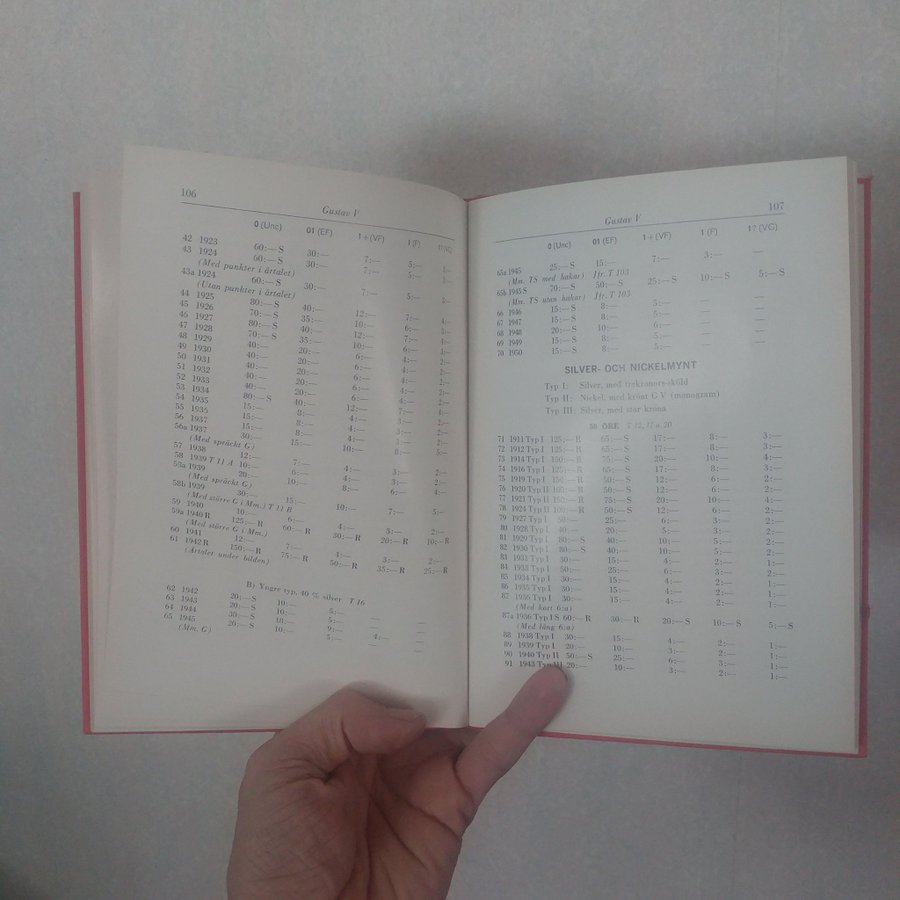 106
Gustav V
0 (Unc) 01 (EF) 1+(VF) 1 (F) 1? (VG)
42 1923 60:— S 30:— 7:— 5:— 1:—
43 1924 60:— S 30:— 7:— 5:— 1:—
(Med punkter i årtalet)
43a 1924 60:— S 30:— 7:— 5:—
(Utan punkter i årtalet)
44 1925 80:— S 40:— 12:— 7:— 4:—
45 1926 70:— S 35:— 10:— 6:—
46 1927 80:— S 40:— 12:— 7:— 4:—
47 1928 70:— S 35:— 10:— 6:—
48 1929 40:— 20:— 6:— 4:— 2:—
49 1930 40:— 20:— 6:— 4:— 2:—
50 1931 40:— 20:— 6:— 4:— 2:—
51 1932 40:— 20:— 6:— 4:— 2:—
52 1933 40:— 20:— 6:— 4:— 2:—
53 1934 80:— S 40:— 12:— 7:—
54 1935 15:— 8:—
55 1935 15:— 8:—
56 1937 15:— 8:—
56a 1937 30:— 15:— 10:— 8:— 5:—
(Med spräckt G)
57 1938 12:— 7:—
58 1939 T 11 A 10:— 6:— 4:— 3:— 2:—
58a 1939 20:— 10:— 8:— 6:— 4:—
(Med spräckt G)
58b 1939 30:— 15:— 10:— 7:— 5:—
(Med större G (Mm.) T 11 B
59 1940 10:— 6:— 4:— 3:— 2:—
59a 1940 R 125:— R 60:— R 30:— R 20:— R 10:— R
(Med större G (Mm.)
60 1941 12:— 7:— 4:— 3:— 2:—
61 1942 R 150:— R 75:— R 50:— R 35:— R 25:— R
(Årtalet under bilden)
B) Yngre typ, 40 % silver T 16
62 1942 20:— S 10:— 5:— — —
63 1943 20:— S 10:— 5:— — —
64 1944 30:— S 10:— — —
65 1945 20:— S 10:— 5:— — —
(Mm. G)
107
Gustav V
0 (Unc) 01 (EF) 1+(VF) 1 (F) 1? (VG)
65a 1945 25:— S 15:— 7:— 3:— —
(Mm. TS med hakar) Jfr. T 103
65b 1945 S 70:— S 50:— S 25:— S 10:— S 5:— S
(Mm. TS utan hakar) Jfr. T 103
66 1946 15:— S 8:— 5:— — —
67 1947 15:— S 8:— 5:— — —
68 1948 20:— S 10:— 6:— — —
69 1949 15:— S 8:— 5:— — —
70 1950 15:— S 8:— 5:— — —
SILVER- OCH NICKELMYNT
Typ I: Silver, med trekronors-sköld
Typ II: Nickel, med krönt G V (monogram)
Typ III: Silver, med stor krona
50 ÖRE T 12, 17 o. 20
71 1911 Typ I 125:— R 65:— S 17:— 8:— 3:—
72 1912 Typ I 125:— R 65:— S 17:— 8:— 3:—
73 1914 Typ I 150:— R 75:— S 20:— 10:— 4:—
74 1916 Typ I 125:— R 65:— S 17:— 8:— 3:—
75 1919 Typ I 50:— S 12:— 6:— 2:—
76 1920 Typ II 50:— S 12:— 6:— 2:—
77 1921 Typ II 150:— R 75:— S 20:— 10:— 4:—
78 1924 Typ II 100:— R 50:— S 12:— 6:— 2:—
79 1927 Typ I 50:— 25:— 6:— 3:— 2:—
80 1928 Typ I 40:— 20:— 5:— 2:—
81 1929 Typ I 80:— S 40:— 10:— 5:— 2:—
82 1930 Typ I 80:— S 40:— 10:— 5:— 2:—
83 1931 Typ I 30:— 15:— 4:— 2:— 1:—
84 1933 Typ I 50:— 25:— 6:— 3:— 2:—
85 1934 Typ I 30:— 15:— 4:— 2:— 1:—
86 1935 Typ I 30:— 15:— 4:— 2:— 1:—
87 1936 Typ I 30:— 15:— 4:— 2:— 1:—
(Med kort 6:a)
87a 1936 Typ I S 60:— R 30:— R 20:— S 10:— S 5:— S
(Med lång 6:a)
88 1938 Typ I 30:— 15:— 4:— 2:— 1:—
89 1939 Typ I 20:— 10:— 3:— 2:— 1:—
90 1940 Typ II 50:— S 25:— 6:— 3:— 1:—
91 1943 Typ III 20:— 10:— 3:— 2:— 1:—